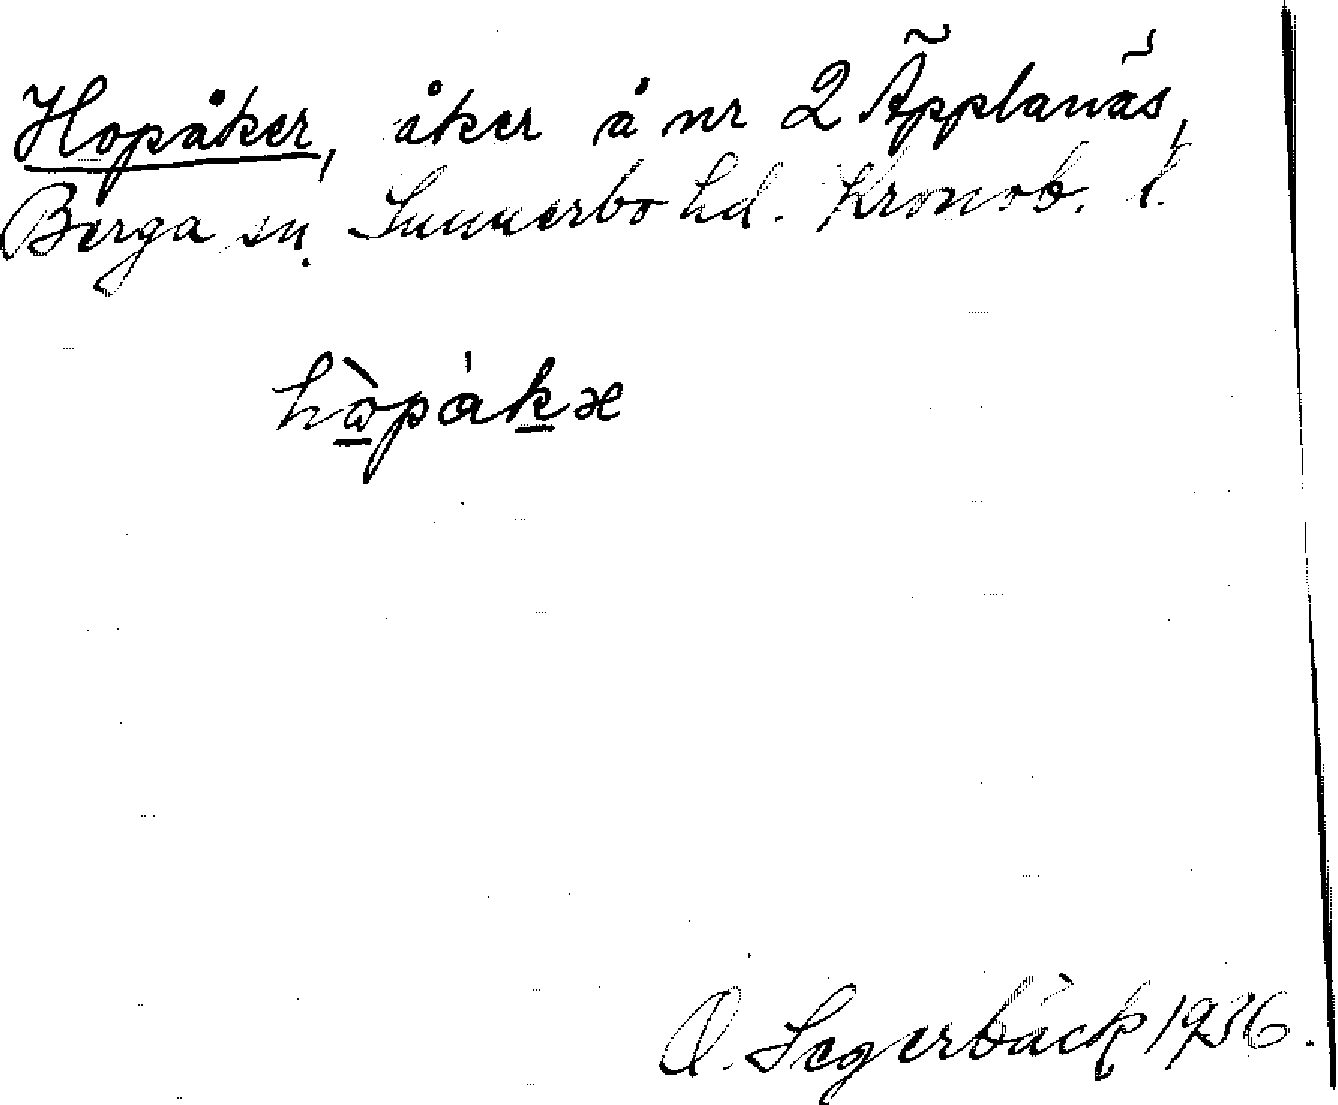 Hopåker, åker å nr 2 Äpplanäs,
Berga sn. Sunnerbo hd. Kronob. l.
hòpákæ
O. Segerbäck 1936.